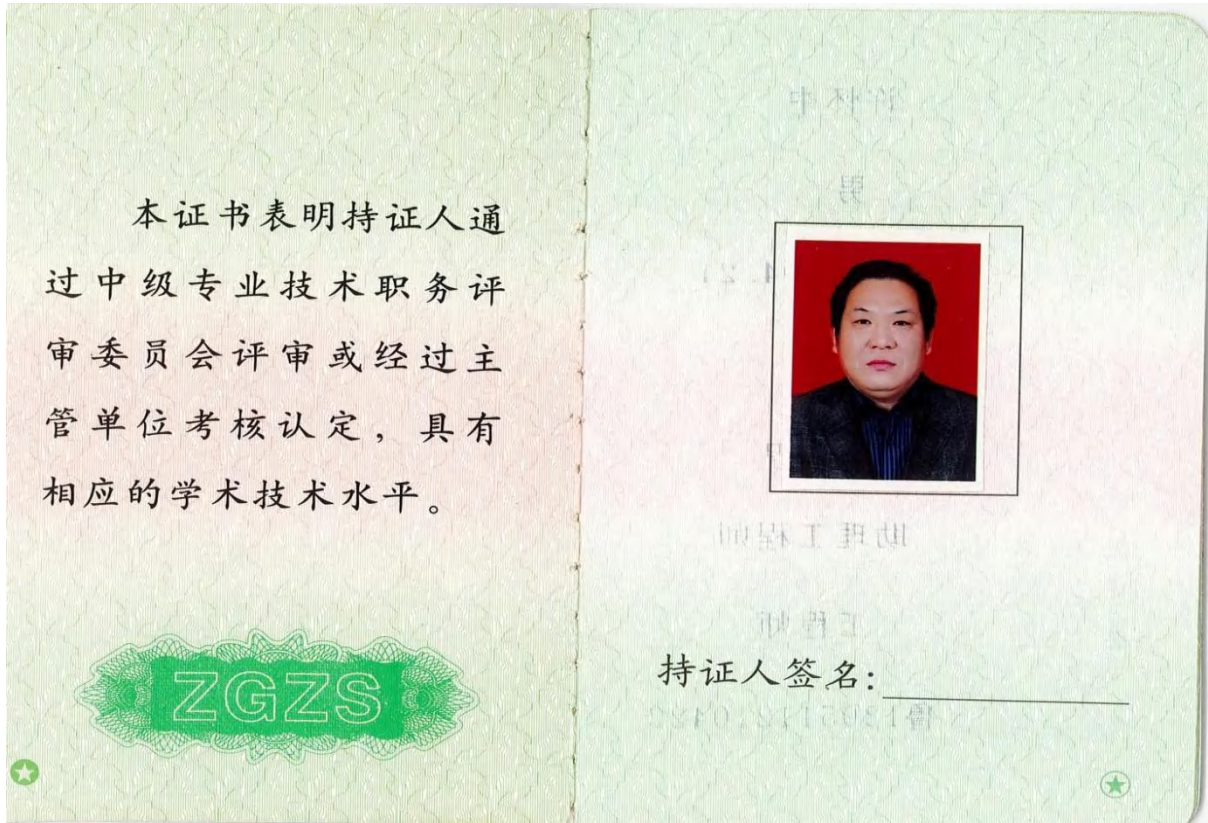 本证书表明持证人通
过中级专业技术职务评
审委员会评审或经过主
管单位考核认定，具有
相应的学术技术水平。
ZGZS
许怀中
男
助理工程师
工程师
持证人签名：